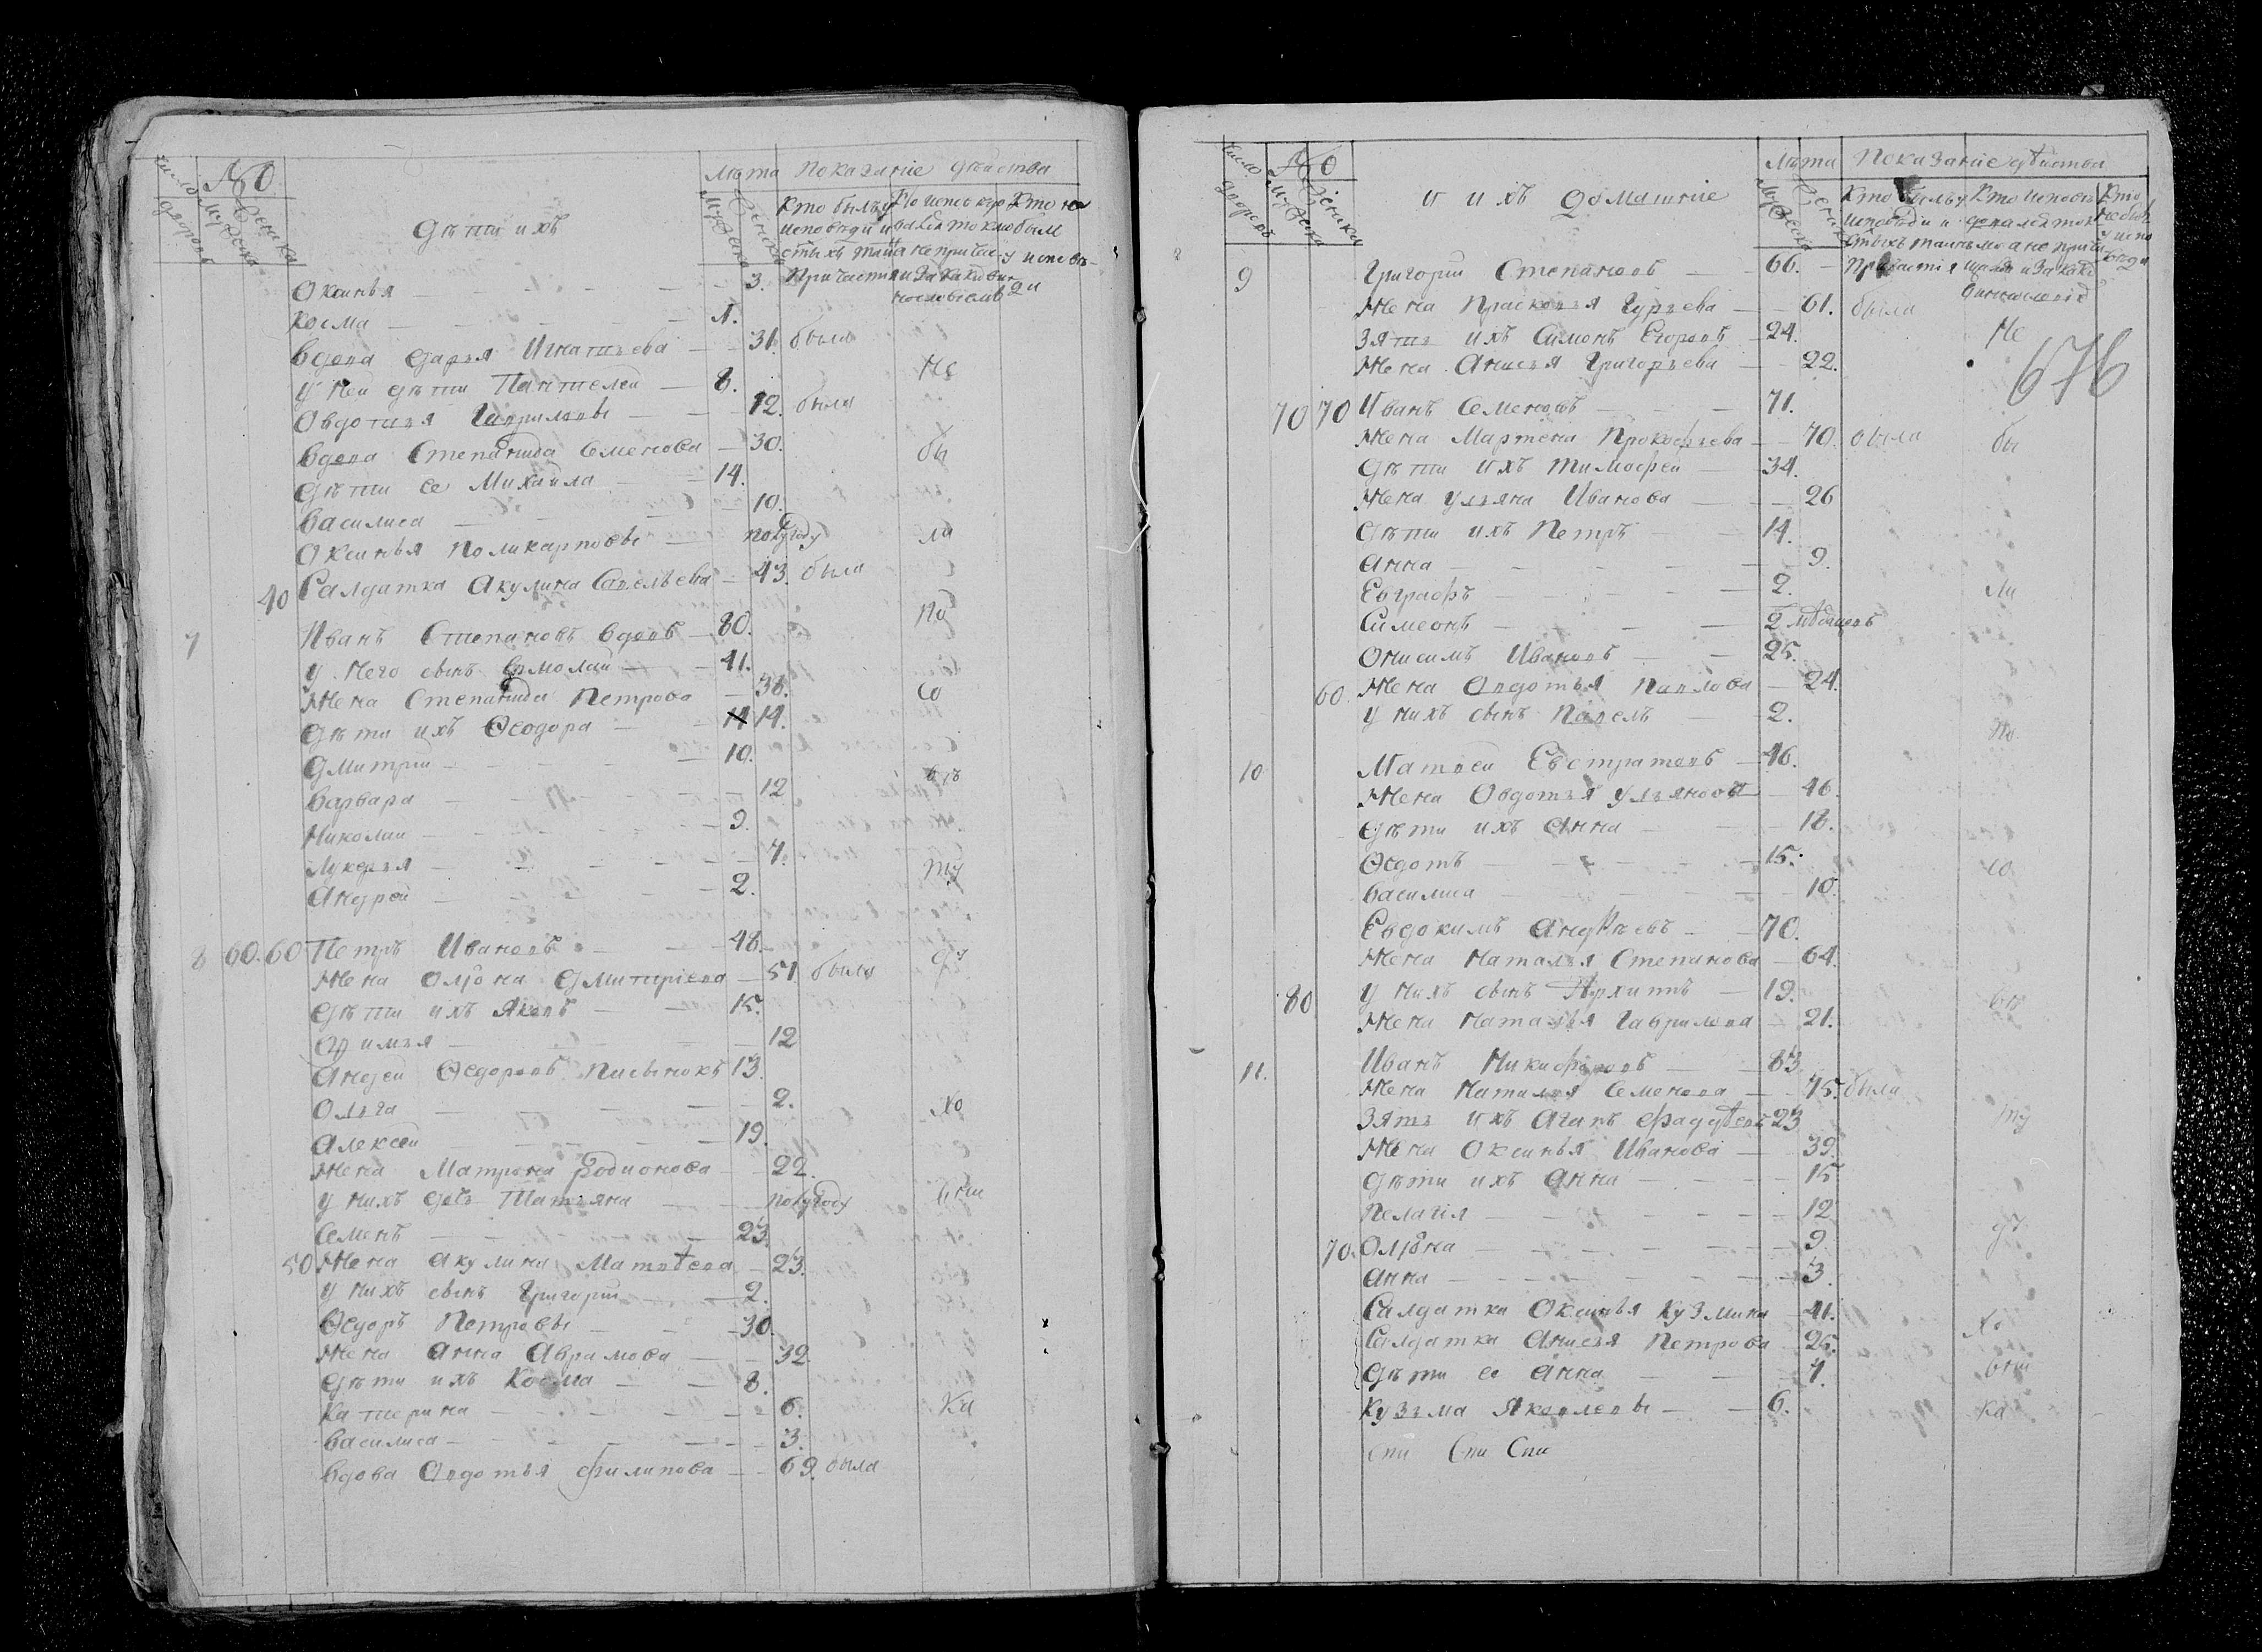 число дворовъ
№
мужеска
женска
дѣти ихъ
Лѣта
мужеска
женска
показанiе дѣйства
Кто былъ у исповѣди и святыхъ таинъ причастия
Кто не былъ у исповѣди
Оксинья 3.
Косма 1.
Вдова Дарья Игнатьева 31. была
У ней дѣти Пантелей 8. Не
Овдотья Гавриловы 12. была
Вдова Степанида Семенова 30. бы
Дѣти ее Михаила 14.
Василиса 10.
Оксинья Поликарповы полугоду ли
40 Салдатка Акулина Савельева 43. была
7 Иванъ Степановъ вдовъ 80. По
У него сынъ Ермолай 41.
Жена Степанида Петрова 38. со
Дѣти ихъ Ѳеодора 14.
Дмитрий 10.
Варвара 12 вѣ
Николай 9.
Лукерья 7.
Андрей 2. ту
8 60. 60 Петръ Ивановъ 48.
Жена Олѡна Дмитриева 51 была ду
Дѣти ихъ Яковъ 15.
Афимья 12
Андрей Ѳедоровъ 13.
Ольга 2. хо
Алексей 19.
Жена Матрона Родионова 22.
У нихъ дочь Татьяна полугоду вни
Семенъ 23.
50 Жена Акулина Матвѣева 23.
У нихъ сынъ Григорий 2.
Ѳедоръ Петровы 30.
Жена Анна Аврамова 32.
Дѣти ихъ Косма 8.
Катерина 6. ка
Василиса 3.
Вдова Овдотья Филипова 69. была
число дворовъ
№
мужеска
женска
и ихъ домашнiе
Лѣта
мужеска
женска
Показанiе дѣйства
Кто былъ у исповѣди и святыхъ таинъ причастiя
9 Григорий Степановъ 66.
Жена Прасковья Гурьева 61. была
Зять ихъ Симонъ Егоровъ 24. Не
Жена Анисья Григорьева 22.
676
70 70 Иванъ Семеновъ 71.
Жена Марѳена Прокофьева 70. была бы
Дѣти ихъ Тимофей 34.
Жена Ульяна Иванова 26
Дѣти ихъ Петръ 14.
Анна 9.
Евграфъ 2. ли
Симеонъ 2 мѣсяцовъ
Онисимъ Ивановъ 25.
60 Жена Овдотья Павлова 24.
У нихъ сынъ Павелъ 2. по
10 Матвей Евстратовъ 46.
Жена Овдотья Ульянова 46.
Дѣти ихъ Анна 18.
Ѳедотъ 15. со
Василиса 10.
Евдокимъ Андрѣевъ 70.
Жена Наталья Степанова 64.
80 У нихъ сынъ Архипъ 19. вѣ
Жена Наталья Гаврилова 21.
11. Иванъ Никифоровъ 83
Жена Наталья Семенова 75. была
Зять ихъ Агапъ Фаддѣевъ 23 ту
Жена Оксинья Иванова 39.
Дѣти ихъ Анна 15
Пелагiя 12 ду
70. Олѡна 9.
Анна 3.
Салдатка Оксинья Кузмина 41.
Салдатка Анисья Петрова 25. хо
Дѣти ее Анна 7. вни
Кузьма Яковлевы 6. ка